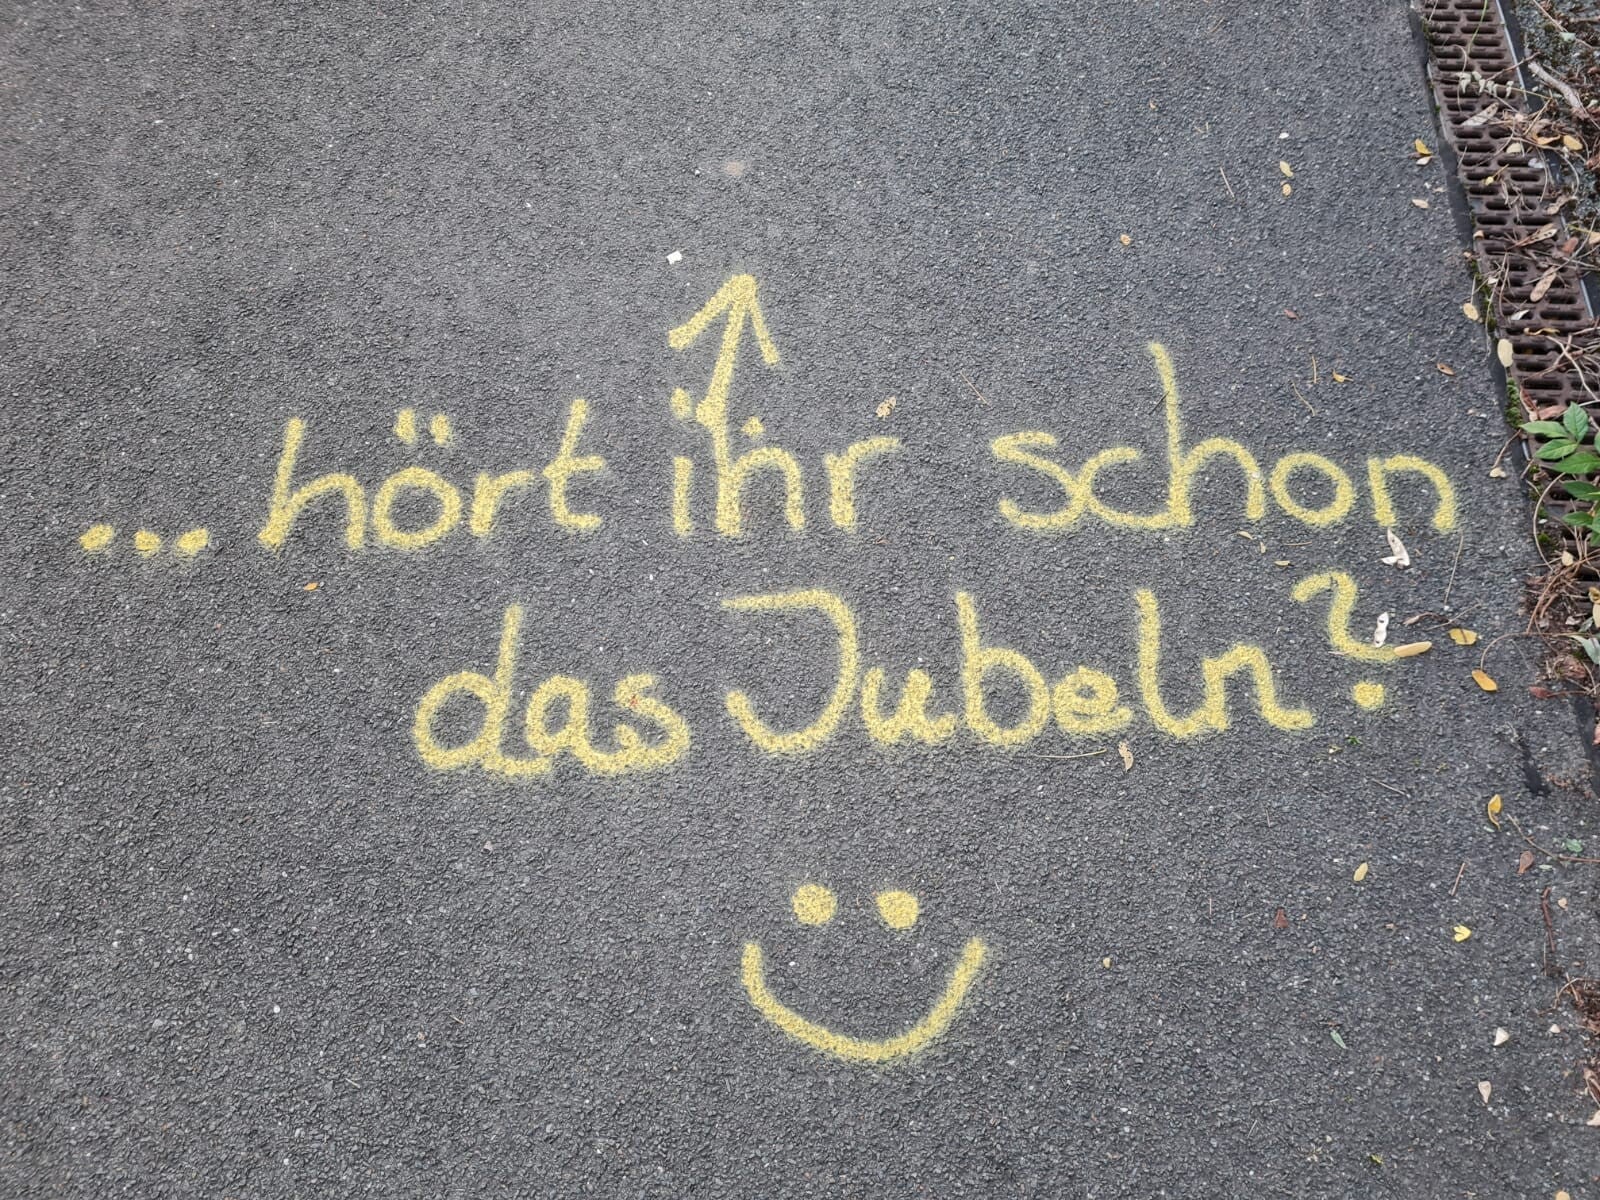 ...hört ihr schon
das Jubeln?